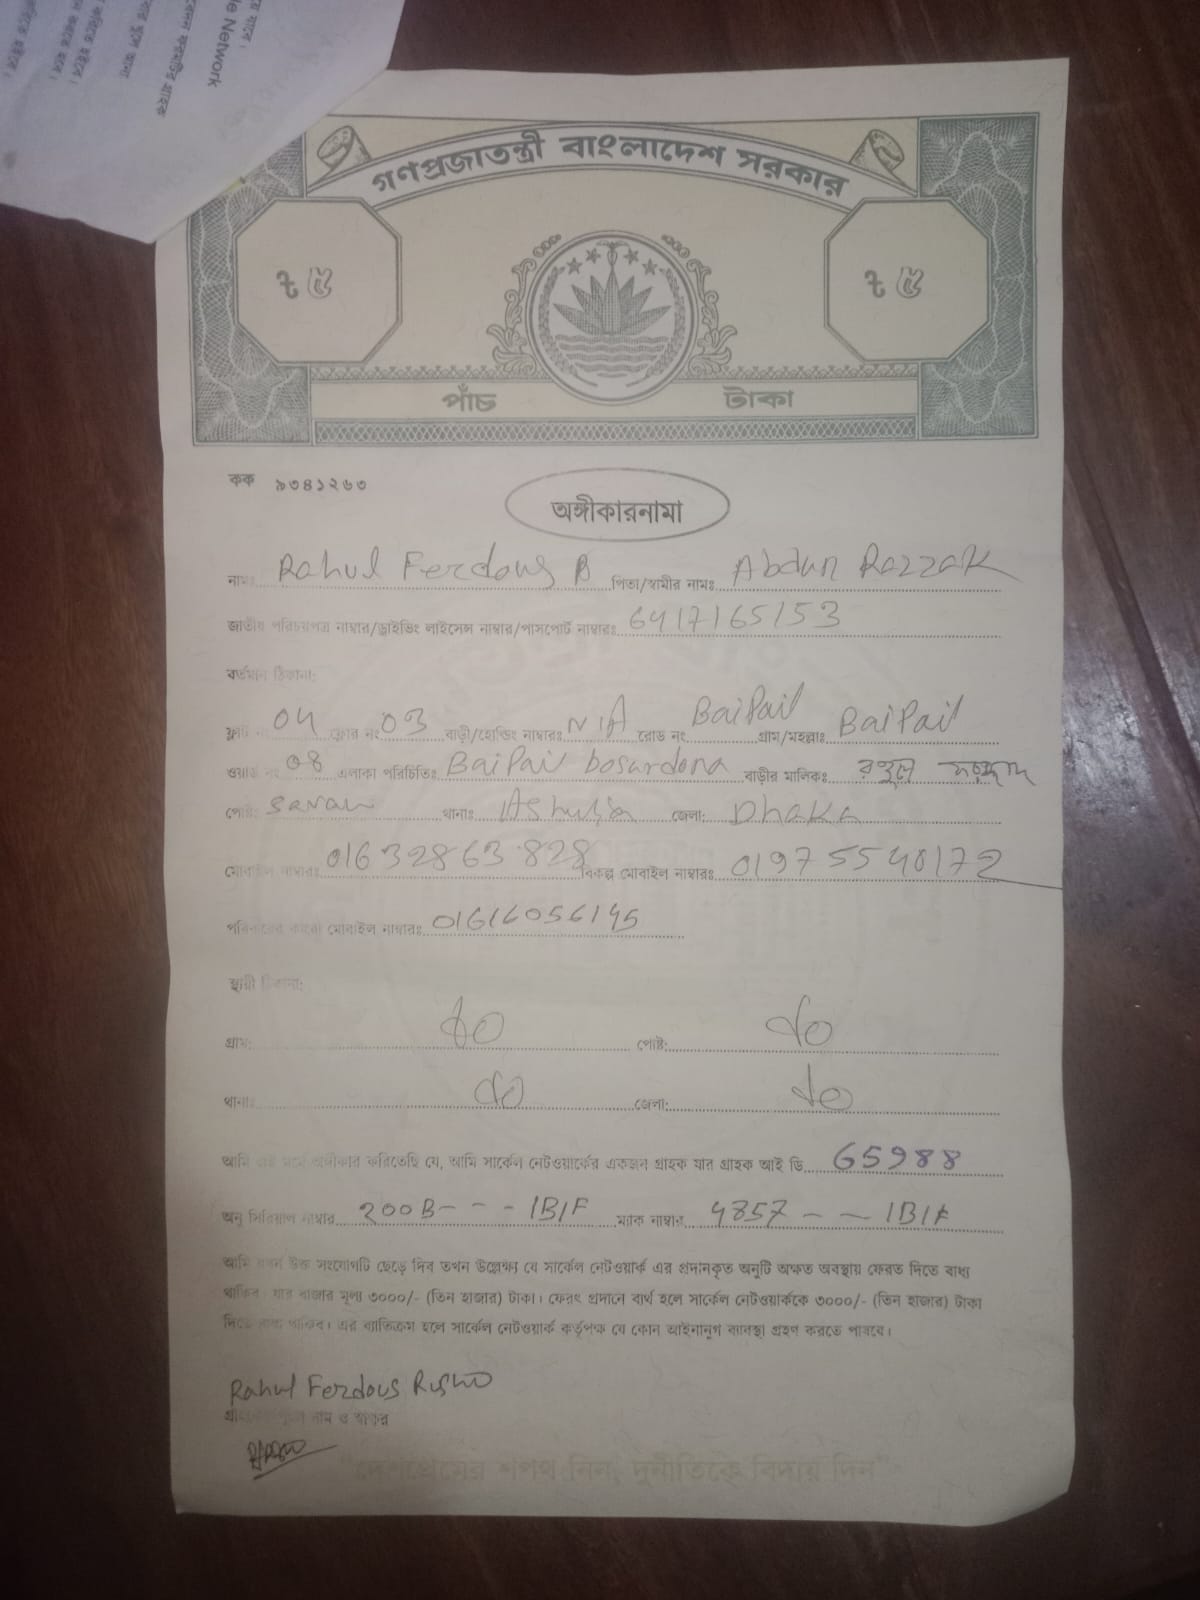 de Network
গণপ্রজাতন্ত্রী বাংলাদেশ সরকার
৳ ৫ ৳ ৫
পাঁচ টাকা
কক ৯৩৪১২৬৩
অঙ্গীকারনামা
নামঃ Rahul Ferdous পিতা/স্বামীর নামঃ Abdur Razzak
জাতীয় পরিচয়পত্র নাম্বার/ড্রাইভিং লাইসেন্স নাম্বার/পাসপোর্ট নাম্বারঃ 6417165153
বর্তমান ঠিকানা:
ফ্লাট নং 04 ফ্লোর নং 03 বাড়ী/হোল্ডিং নাম্বারঃ N/A রোড নং Baipail গ্রাম/মহল্লাঃ Baipail
ওয়ার্ড নং 08 এলাকা পরিচিতিঃ Baipail bosundona বাড়ীর মালিকঃ
পোষ্ট: Savar থানাঃ Ashulia জেলা: Dhaka
মোবাইল নাম্বারঃ 01632863828 বিকল্প মোবাইল নাম্বারঃ 01975540172
পরিবারের কারো মোবাইল নাম্বারঃ 01616056145
স্থায়ী ঠিকানা:
গ্রাম: do পোষ্ট: do
থানাঃ do জেলা: do
আমি এই মর্মে অঙ্গীকার করিতেছি যে, আমি সার্কেল নেটওয়ার্কের একজন গ্রাহক যার গ্রাহক আই ডি 65988
অনু সিরিয়াল নাম্বার 200B--- 1B1F ম্যাক নাম্বার 4857-- 1B1F
আমি যখন উক্ত সংযোগটি ছেড়ে দিব তখন উল্লেক্ষ্য যে সার্কেল নেটওয়ার্ক এর প্রদানকৃত অনুটি অক্ষত অবস্থায় ফেরত দিতে বাধ্য
থাকিব যার বাজার মূল্য ৩০০০/- (তিন হাজার) টাকা। ফেরৎ প্রদানে ব্যর্থ হলে সার্কেল নেটওয়ার্ককে ৩০০০/- (তিন হাজার) টাকা
দিতে বাধ্য থাকিব। এর ব্যাতিক্রম হলে সার্কেল নেটওয়ার্ক কর্তৃপক্ষ যে কোন আইনানুগ ব্যাবস্থা গ্রহণ করতে পারবে।
Rahul Ferdous Risho
গ্রাহকের পূর্ণ নাম ও স্বাক্ষর
"দেশপ্রেমের শপথ নিন, দুর্নীতিকে বিদায় দিন"